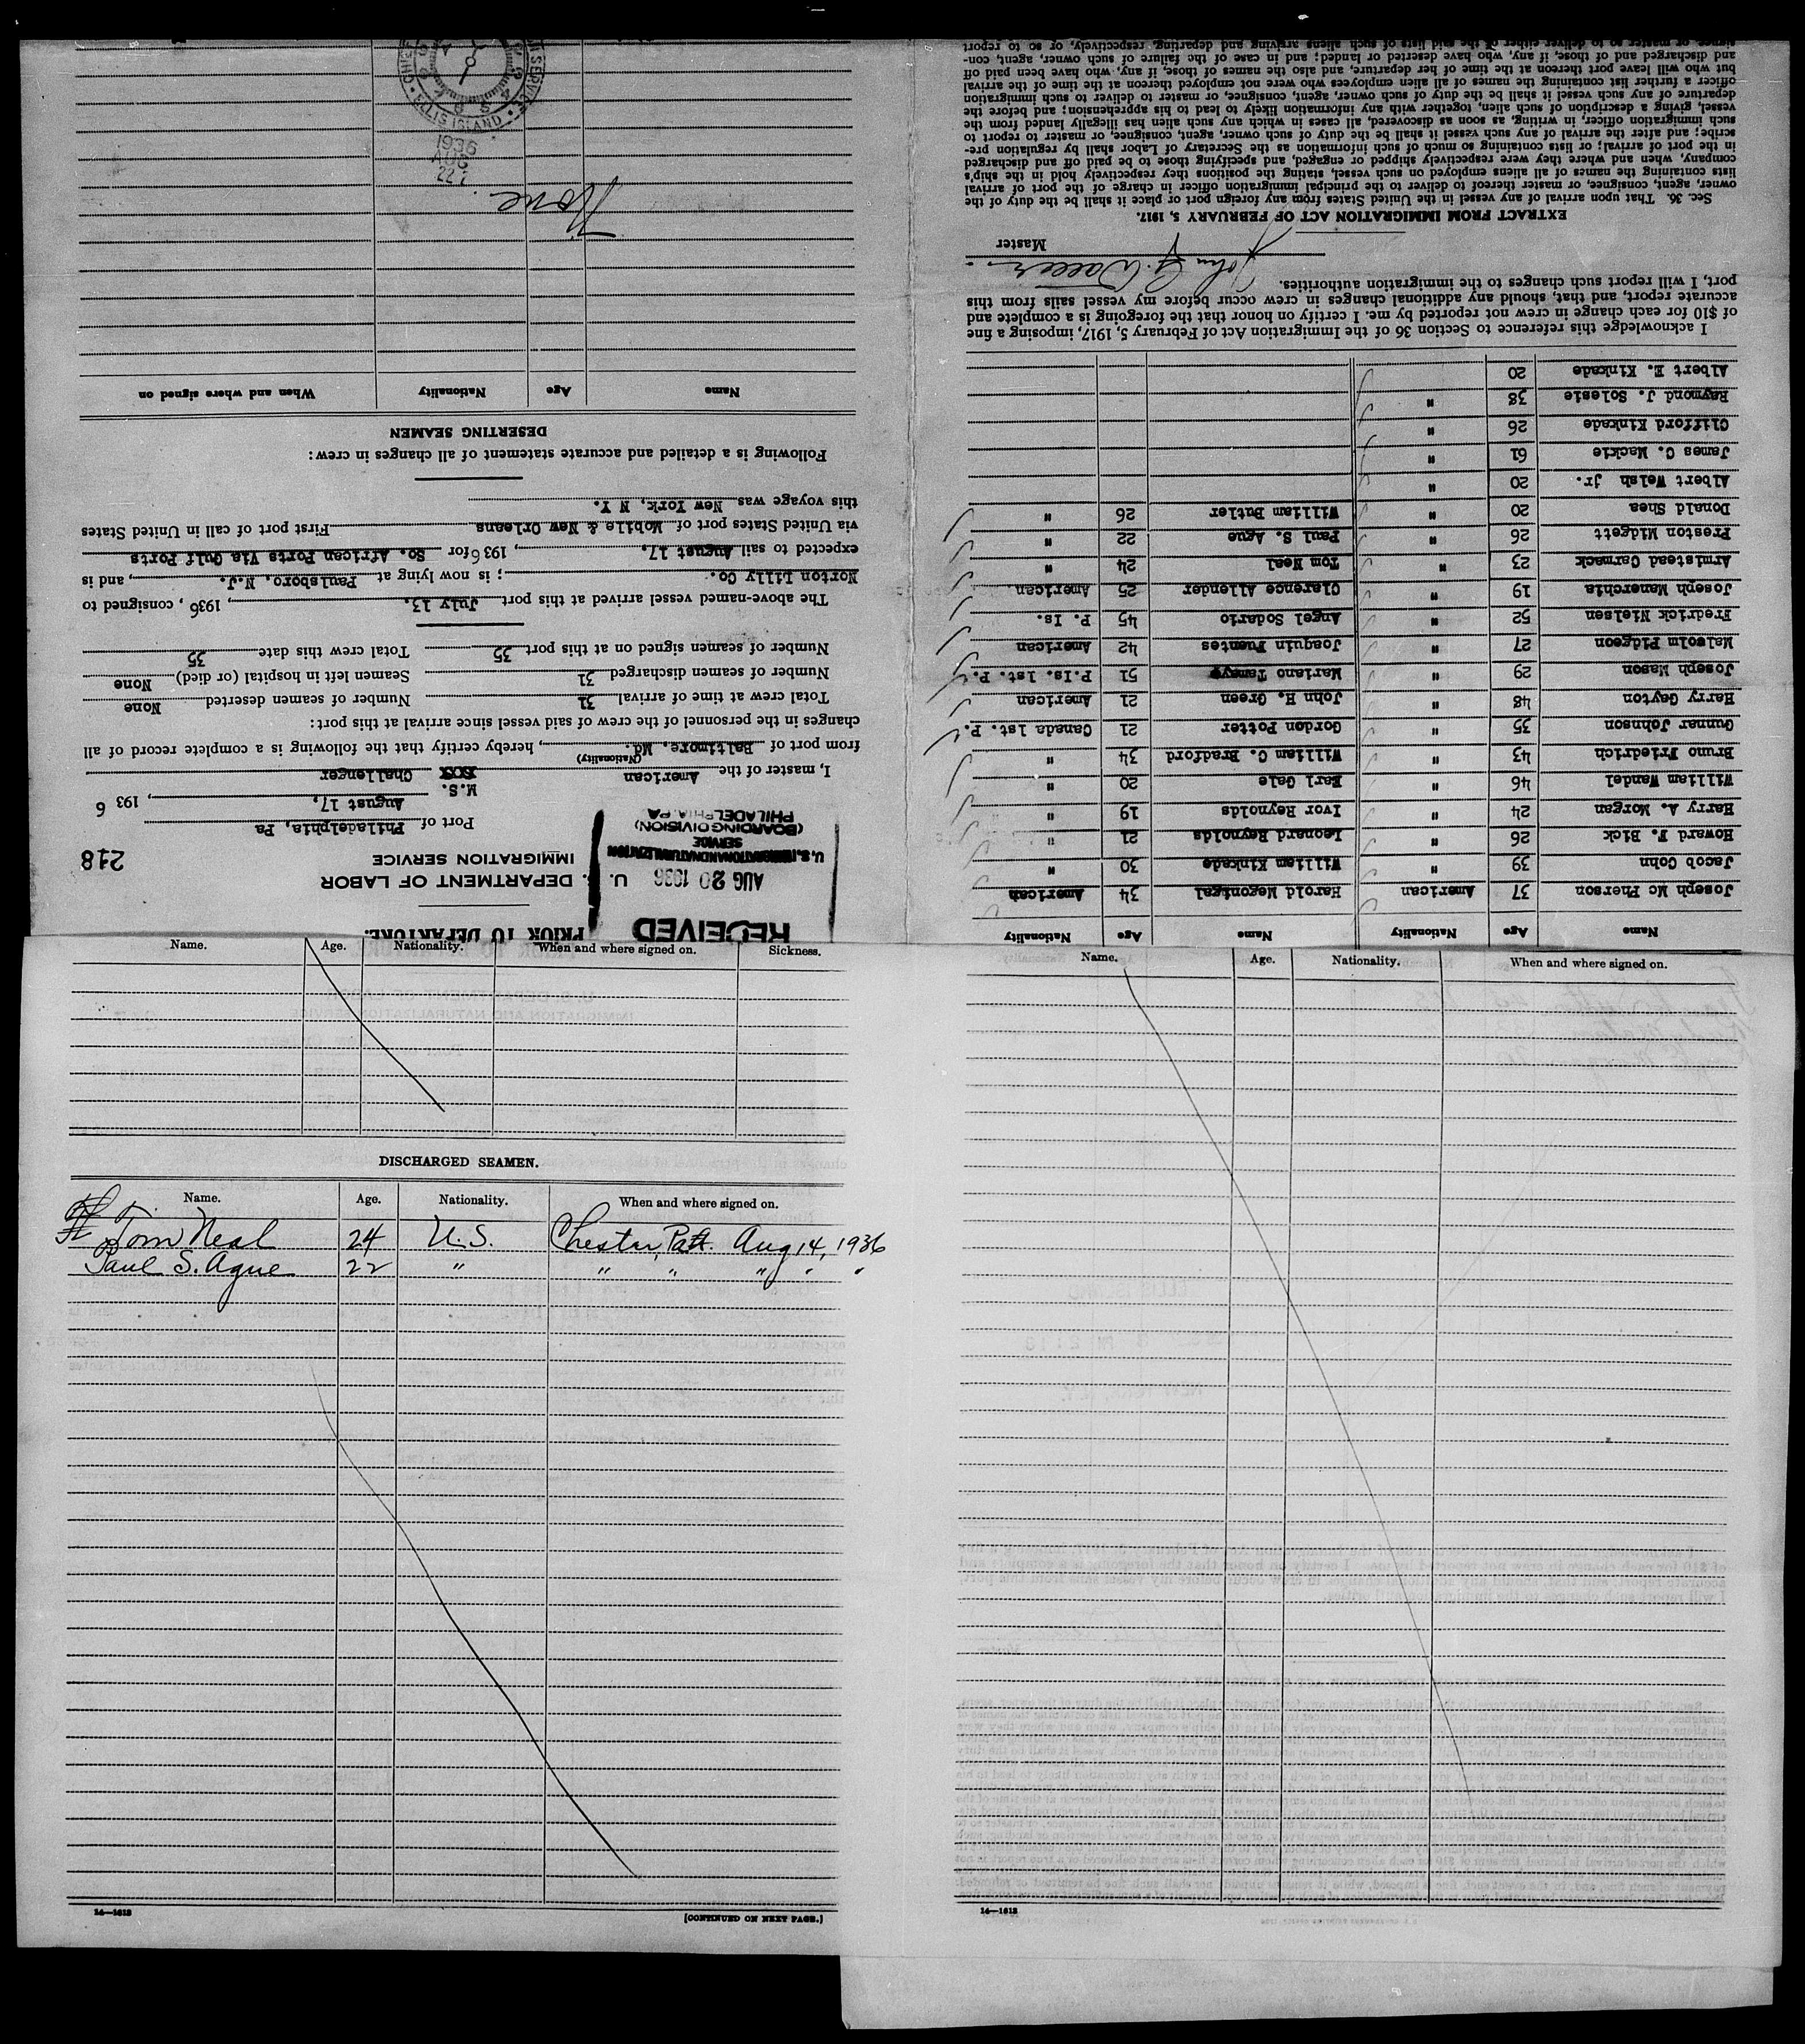 PRIOR TO DEPARTURE.
RECEIVED
AUG 20 1936
U.S. IMMIGRATION AND NATURALIZATION
SERVICE
(BOARDING DIVISION)
PHILADELPHIA, PA
U. S. DEPARTMENT OF LABOR
IMMIGRATION SERVICE
218
Port of Philadelphia, Pa
August 17, , 193 6
M.S.
I, master of the American XXXX Challenger
(Nationality)
from port of Baltimore, Md. , hereby certify that the following is a complete record of all
changes in the personnel of the crew of said vessel since arrival at this port:
Total crew at time of arrival 31 Number of seamen deserted None
Number of seamen discharged 31 Seamen left in hospital (or died) None
Number of seamen signed on at this port 35 Total crew this date 35
The above-named vessel arrived at this port July 13. , 1936 , consigned to
Norton Lilly Co. ; is now lying at Paulsboro, N.J. , and is
expected to sail August 17, , 1936 for So. African Ports Via Gulf Ports
via United States port of Mobile & New Orleans First port of call in United States
this voyage was New York, N Y.
Following is a detailed and accurate statement of all changes in crew:
DESERTING SEAMEN
Name Age Nationality When and where signed on
None
22
AUG
1936
ELLIS ISLAND
Name Age Nationality Name Age Nationality
Joseph Mc Pherson 37 American Harold Megonigal 34 American
Jacob Cohn 39 " William Kinkade 30 "
Howard F. Bick 26 " Leonard Reynolds 21 "
Harry A. Morgan 24 " Ivor Reynolds 19 "
William Wandel 46 " Earl Gale 20 "
Bruno Friedrich 43 " William C. Bradford 34 "
Gunnar Johnson 35 " Gordon Potter 21 Canada 1st. P.
Harry Gayton 48 " John H. Green 21 American
Joseph Mason 29 " Mariano Tamayo 51 P.Is. 1st. P.
Malcolm Pidgeon 27 " Joaquin Fuentes 42 American
Fredrick Nielsen 52 " Angel Sodario 45 P. Is.
Joseph Manerchia 19 " Clarence Allender 25 American
Armistead Carmack 23 " Tom Neal 24 "
Preston Midgett 26 " Paul S. Ague 22 "
Donald Shea 20 " William Butler 26 "
Albert Welsh Jr. 20 "
James C. Mackie 61 "
Clifford Kinkade 26 "
Raymond J. Solesie 38 "
Albert E. Kinkade 20 "
I acknowledge this reference to Section 36 of the Immigration Act of February 5, 1917, imposing a fine
of $10 for each change in crew not reported by me. I certify on honor that the foregoing is a complete and
accurate report, and that, should any additional changes in crew occur before my vessel sails from this
port, I will report such changes to the immigration authorities.
John G. Waller
Master
EXTRACT FROM IMMIGRATION ACT OF FEBRUARY 5, 1917.
Sec. 36. That upon arrival of any vessel in the United States from any foreign port or place it shall be the duty of the
owner, agent, consignee, or master thereof to deliver to the principal immigration officer in charge of the port of arrival
lists containing the names of all aliens employed on such vessel, stating the positions they respectively hold in the ship's
company, when and where they were respectively shipped or engaged, and specifying those to be paid off and discharged
in the port of arrival; or lists containing so much of such information as the Secretary of Labor shall by regulation pre-
scribe; and after the arrival of any such vessel it shall be the duty of such owner, agent, consignee, or master to report to
such immigration officer, in writing, as soon as discovered, all cases in which any such alien has illegally landed from the
vessel, giving a description of such alien, together with any information likely to lead to his apprehension; and before the
departure of any such vessel it shall be the duty of such owner, agent, consignee, or master to deliver to such immigration
officer a further list containing the names of all alien employees who were not employed thereon at the time of the arrival
but who will leave port thereon at the time of her departure, and also the names of those, if any, who have been paid off
and discharged and of those, if any, who have deserted or landed; and in case of the failure of such owner, agent, con-
signee, or master so to deliver either of the said lists of such aliens arriving and departing, respectively, or so to report
Name. Age. Nationality. When and where signed on. Sickness.
DISCHARGED SEAMEN.
Name. Age. Nationality. When and where signed on.
Tom Neal 24 U.S. Chester, Pa. Aug 14, 1936
Paul S. Ague 22 " " " " " "
14—1613
[CONTINUED ON NEXT PAGE.]
Name. Age. Nationality. When and where signed on.
14—1613